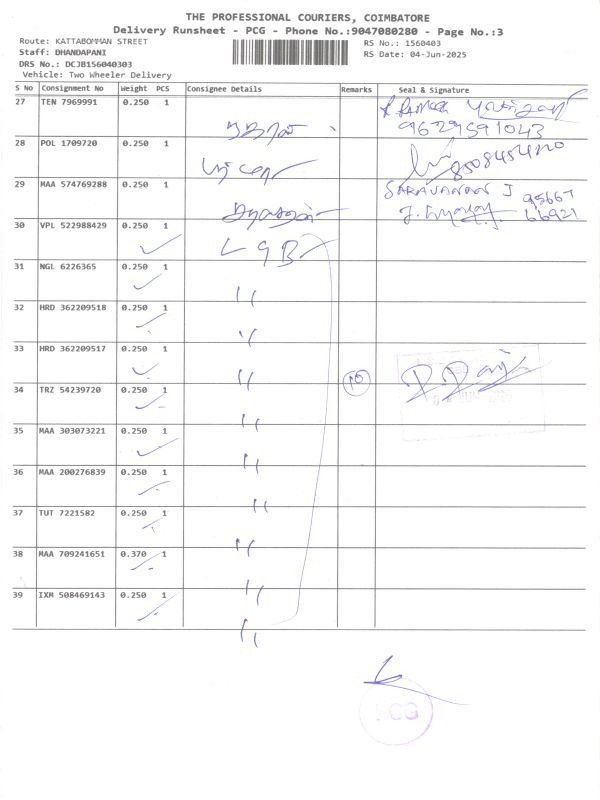 THE PROFESSIONAL COURIERS, COIMBATORE
Delivery Runsheet - PCG - Phone No.:9047080280 - Page No.:3
Route: KATTABOMMAN STREET
RS No.: 1560403
Staff: DHANDAPANI
RS Date: 04-Jun-2025
DRS No.: DCJB156040303
Vehicle: Two Wheeler Delivery
S No Consignment No Weight PCS Consignee Details Remarks Seal & Signature
27 TEN 7969991 0.250 1
9629591043
28 POL 1709720 0.250 1
29 MAA 574769288 0.250 1 SARAVANAN J 95667
66921
30 VPL 522988429 0.250 1
L G B
31 NGL 6226365 0.250 1
〃
32 HRD 362209518 0.250 1
〃
33 HRD 362209517 0.250 1
〃 10
34 TRZ 54239720 0.250 1
〃
35 MAA 303073221 0.250 1
〃
36 MAA 200276839 0.250 1
〃
37 TUT 7221582 0.250 1
〃
38 MAA 709241651 0.370 1
〃
39 IXM 508469143 0.250 1
〃
PCG